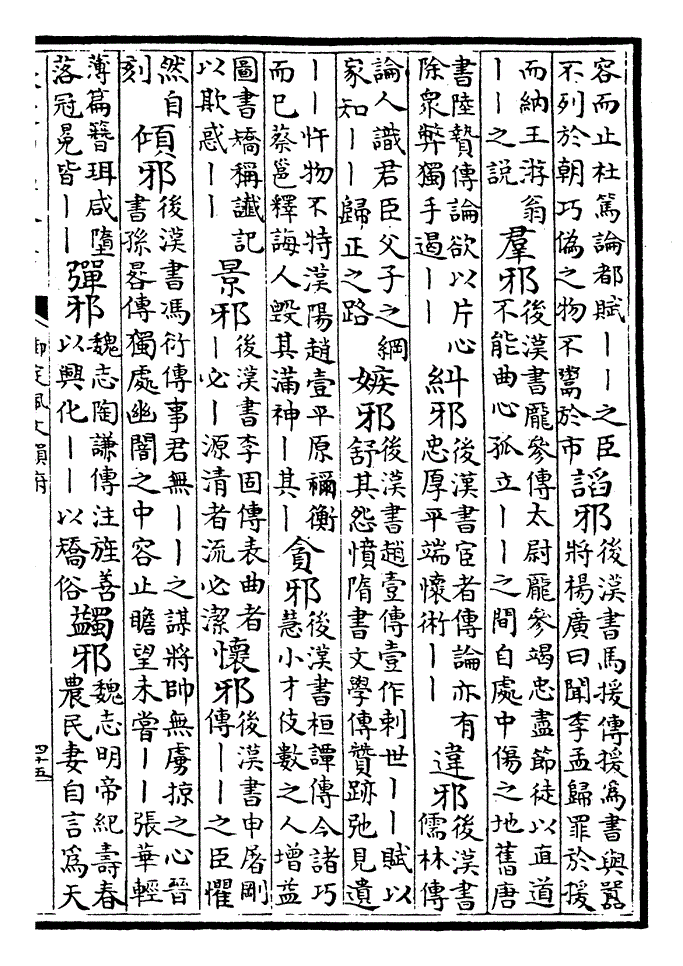 容而止杜篤論都賦——之臣不列於朝巧偽之物不鬻於市諂邪後漢書馬援傳援為書與囂將楊廣曰聞李孟歸罪於援
而納王游翁——之說羣邪後漢書龐參傳太尉龐參竭忠盡節徒以直道不能曲心孤立——之間自處中傷之地舊唐
書陸贄傳論欲以片心除衆弊獨手遏——糾邪後漢書宦者傳論亦有忠厚平端懷術——違邪後漢書儒林傳
論人識君臣父子之綱家知——歸正之路嫉邪後漢書趙壹傳壹作刺世——賦以舒其怨憤隋書文學傳贊跡弛見遺
——忤物不特漢陽趙壹平原禰衡而已蔡邕釋誨人毀其滿神—其—貪邪後漢書桓譚傳今諸巧慧小才伎數之人增益
圖書矯稱讖記以欺惑——景邪後漢書李固傳表曲者—必—源清者流必潔懷邪後漢書申屠剛傳——之臣懼
然自刻傾邪後漢書馮衍傳事君無——之謀將帥無虜掠之心晉書孫晷傳獨處幽闇之中容止瞻望未嘗——張華輕
薄篇簪珥咸墮落冠冕皆——彈邪魏志陶謙傳注旌善以興化——以矯俗蠲邪魏志明帝紀壽春農民妻自言為天
御定佩文韻府
四十五